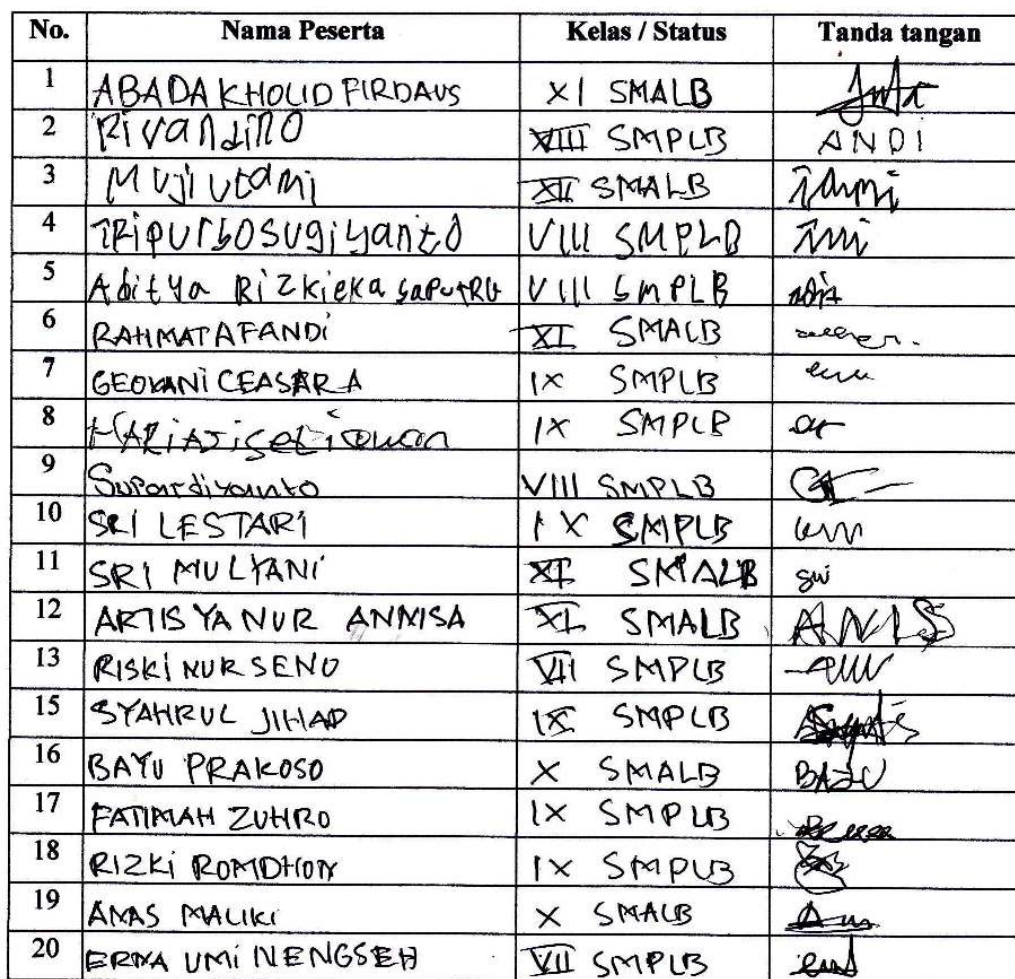 No. Nama Peserta Kelas / Status Tanda tangan
1 ABADA KHOLID FIRDAUS XI SMALB
2 Rivandino XIII SMPLB ANDI
3 Muji utami XII SMALB
4 TRipurbosugiyanto VIII SMPLB
5 Aditya Rizkieka saputRa VIII SMPLB
6 RAHMAT AFANDi XI SMALB
7 GEOVANi CEASARA IX SMPLB
8 HARiAjisetiawan IX SMPLB
9 Supardiyanto VIII SMPLB
10 SRI LESTARI IX SMPLB
11 SRI MULYANI XI SMALB
12 ARTISYA NUR ANNISA XI SMALB ANIS
13 RISKi NUR SENO VII SMPLB
15 SYAHRUL JIHAD IX SMPLB
16 BAYU PRAKOSO X SMALB BAYU
17 FATIMAH ZUHRO IX SMPLB
18 RIZKi ROMDHON IX SMPLB
19 ANAS MALIKI X SMALB
20 ERNA UMi NENGSEH VII SMPLB